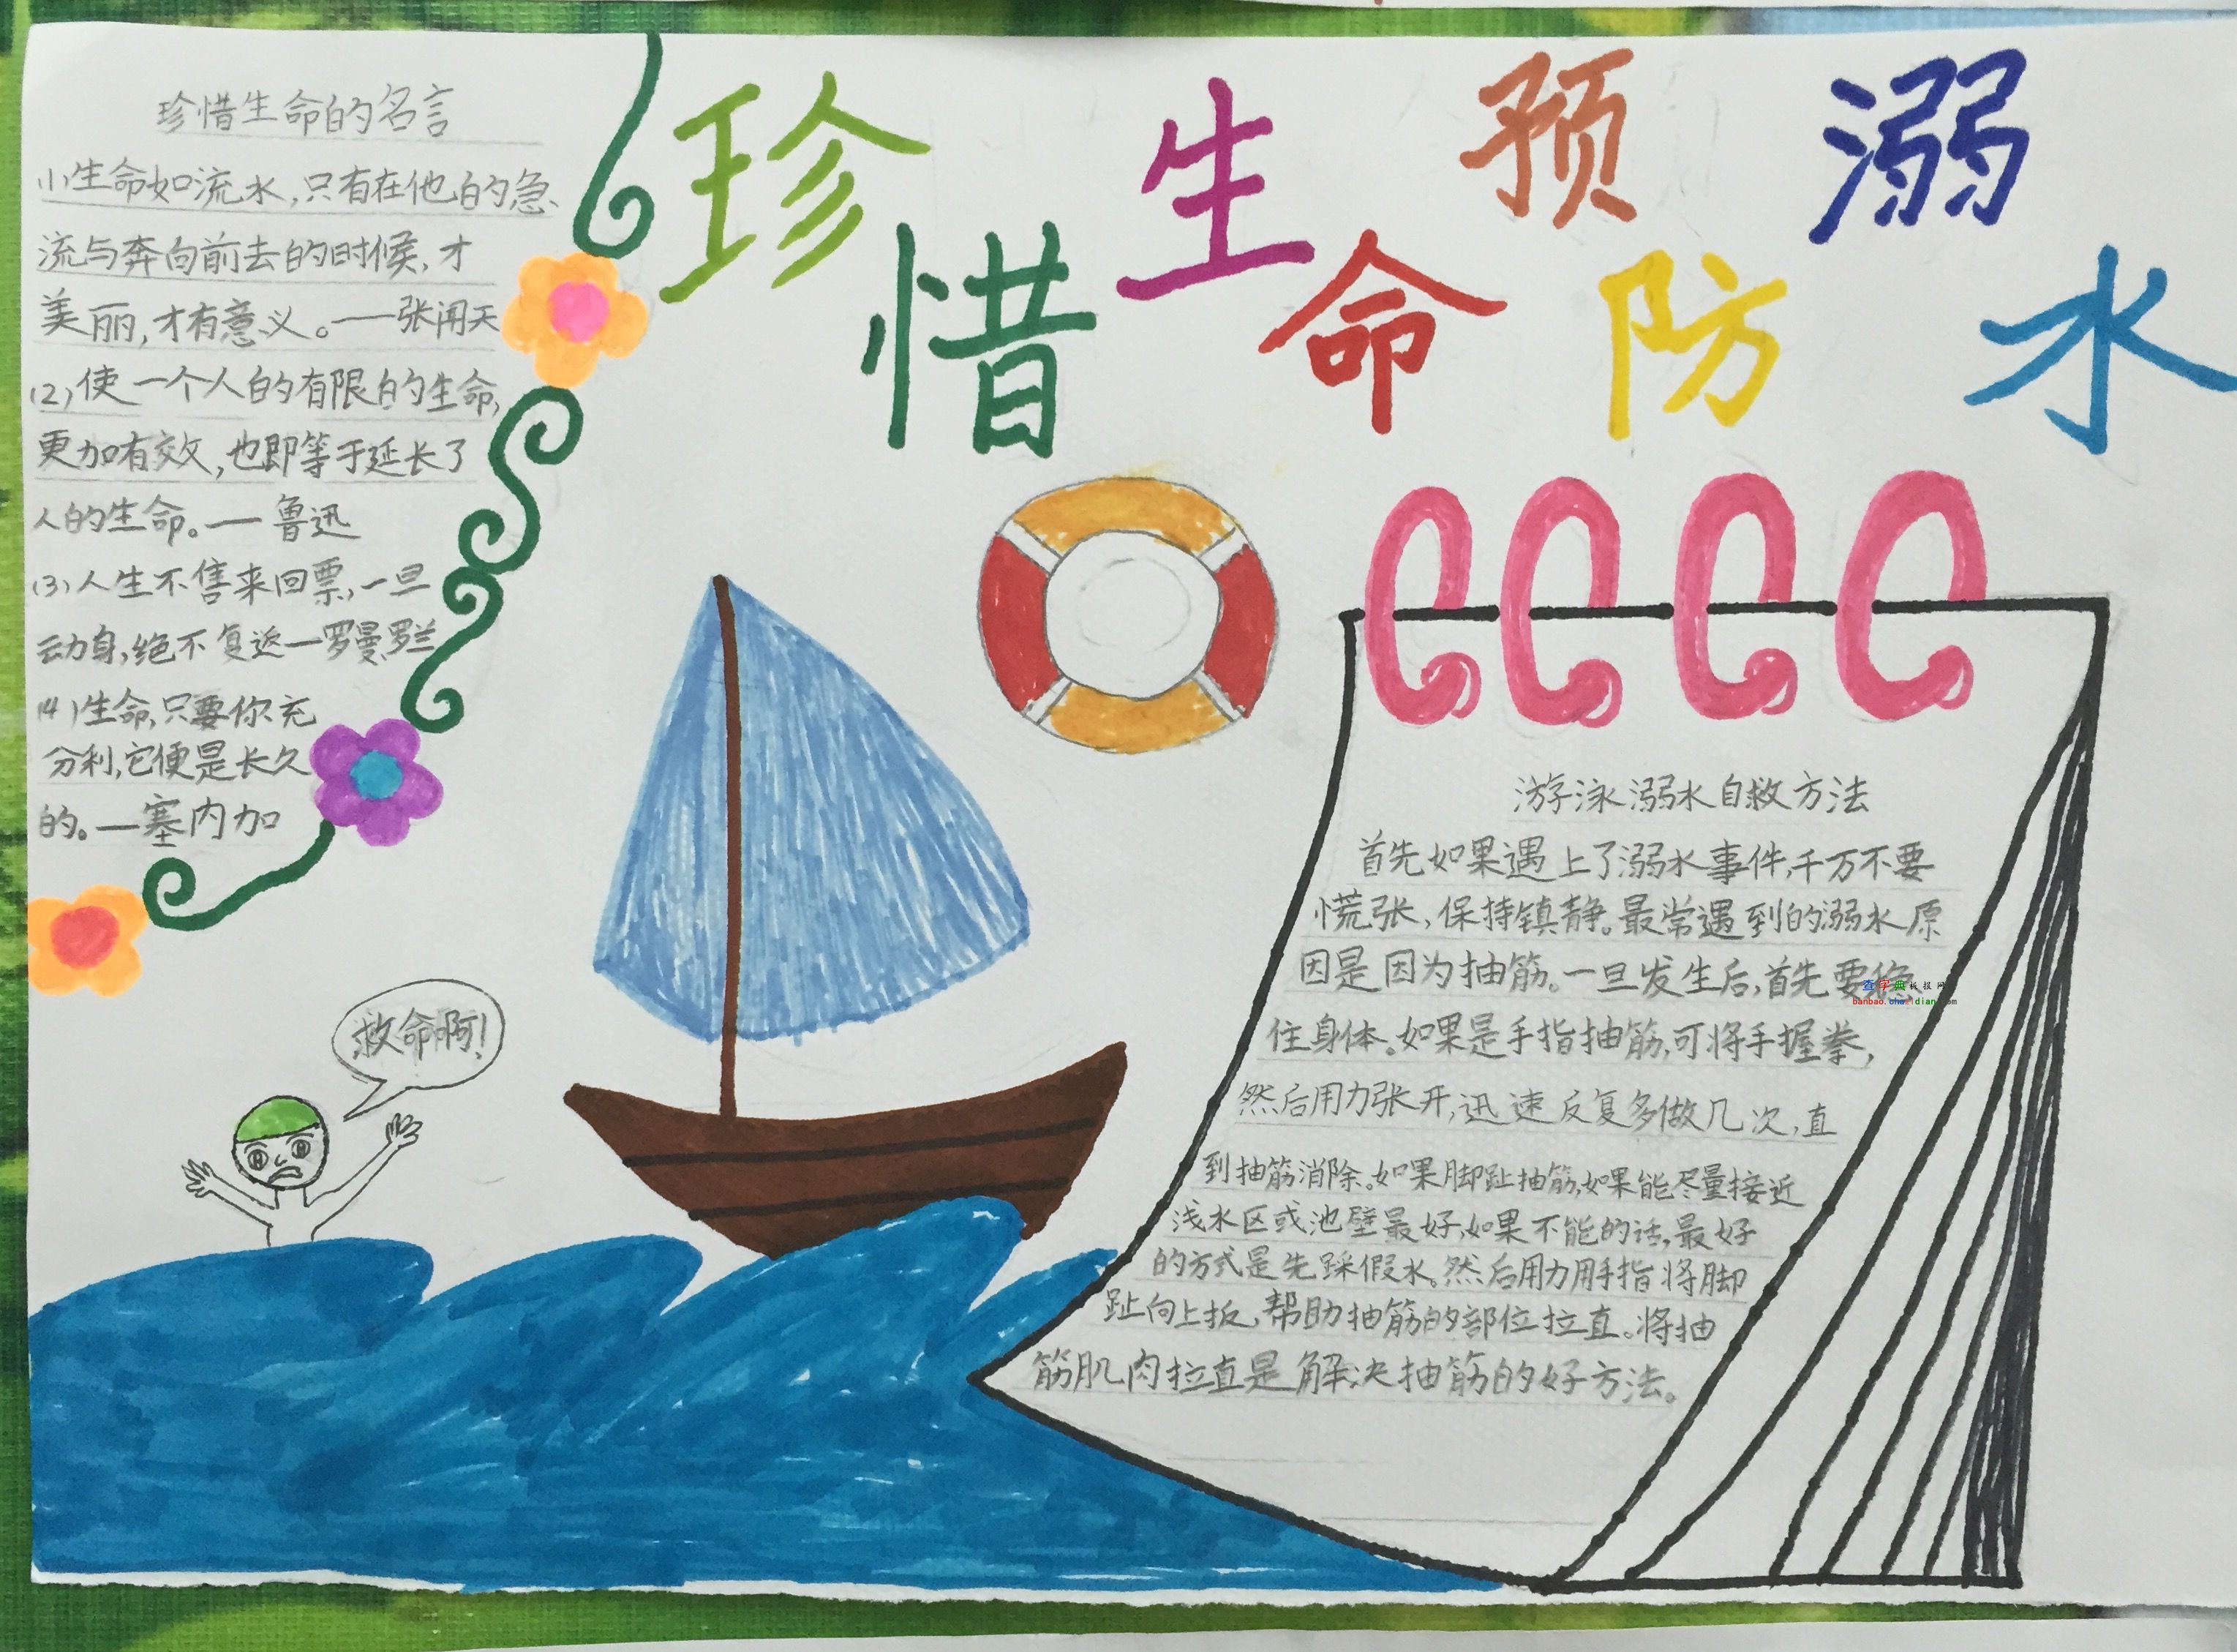 珍惜生命预防溺水
珍惜生命的名言
(1)生命如流水,只有在他的急
流与奔向前去的时候,才
美丽,才有意义。——张闻天
(2)使一个人的有限的生命,
更加有效,也即等于延长了
人的生命。——鲁迅
(3)人生不售来回票,一旦
动身,绝不复返—罗曼罗兰
(4)生命,只要你充
分利,它便是长久
的。—塞内加
救命啊!
游泳溺水自救方法
首先如果遇上了溺水事件,千万不要
慌张,保持镇静。最常遇到的溺水原
因是因为抽筋。一旦发生后,首先要稳
住身体。如果是手指抽筋,可将手握拳,
然后用力张开,迅速反复多做几次,直
到抽筋消除。如果脚趾抽筋,如果能尽量接近
浅水区或池壁最好,如果不能的话,最好
的方式是先踩假水。然后用力用手指将脚
趾向上扳,帮助抽筋的部位拉直。将抽
筋肌肉拉直是解决抽筋的好方法。
查字典板报网
banbao.chazidian.com